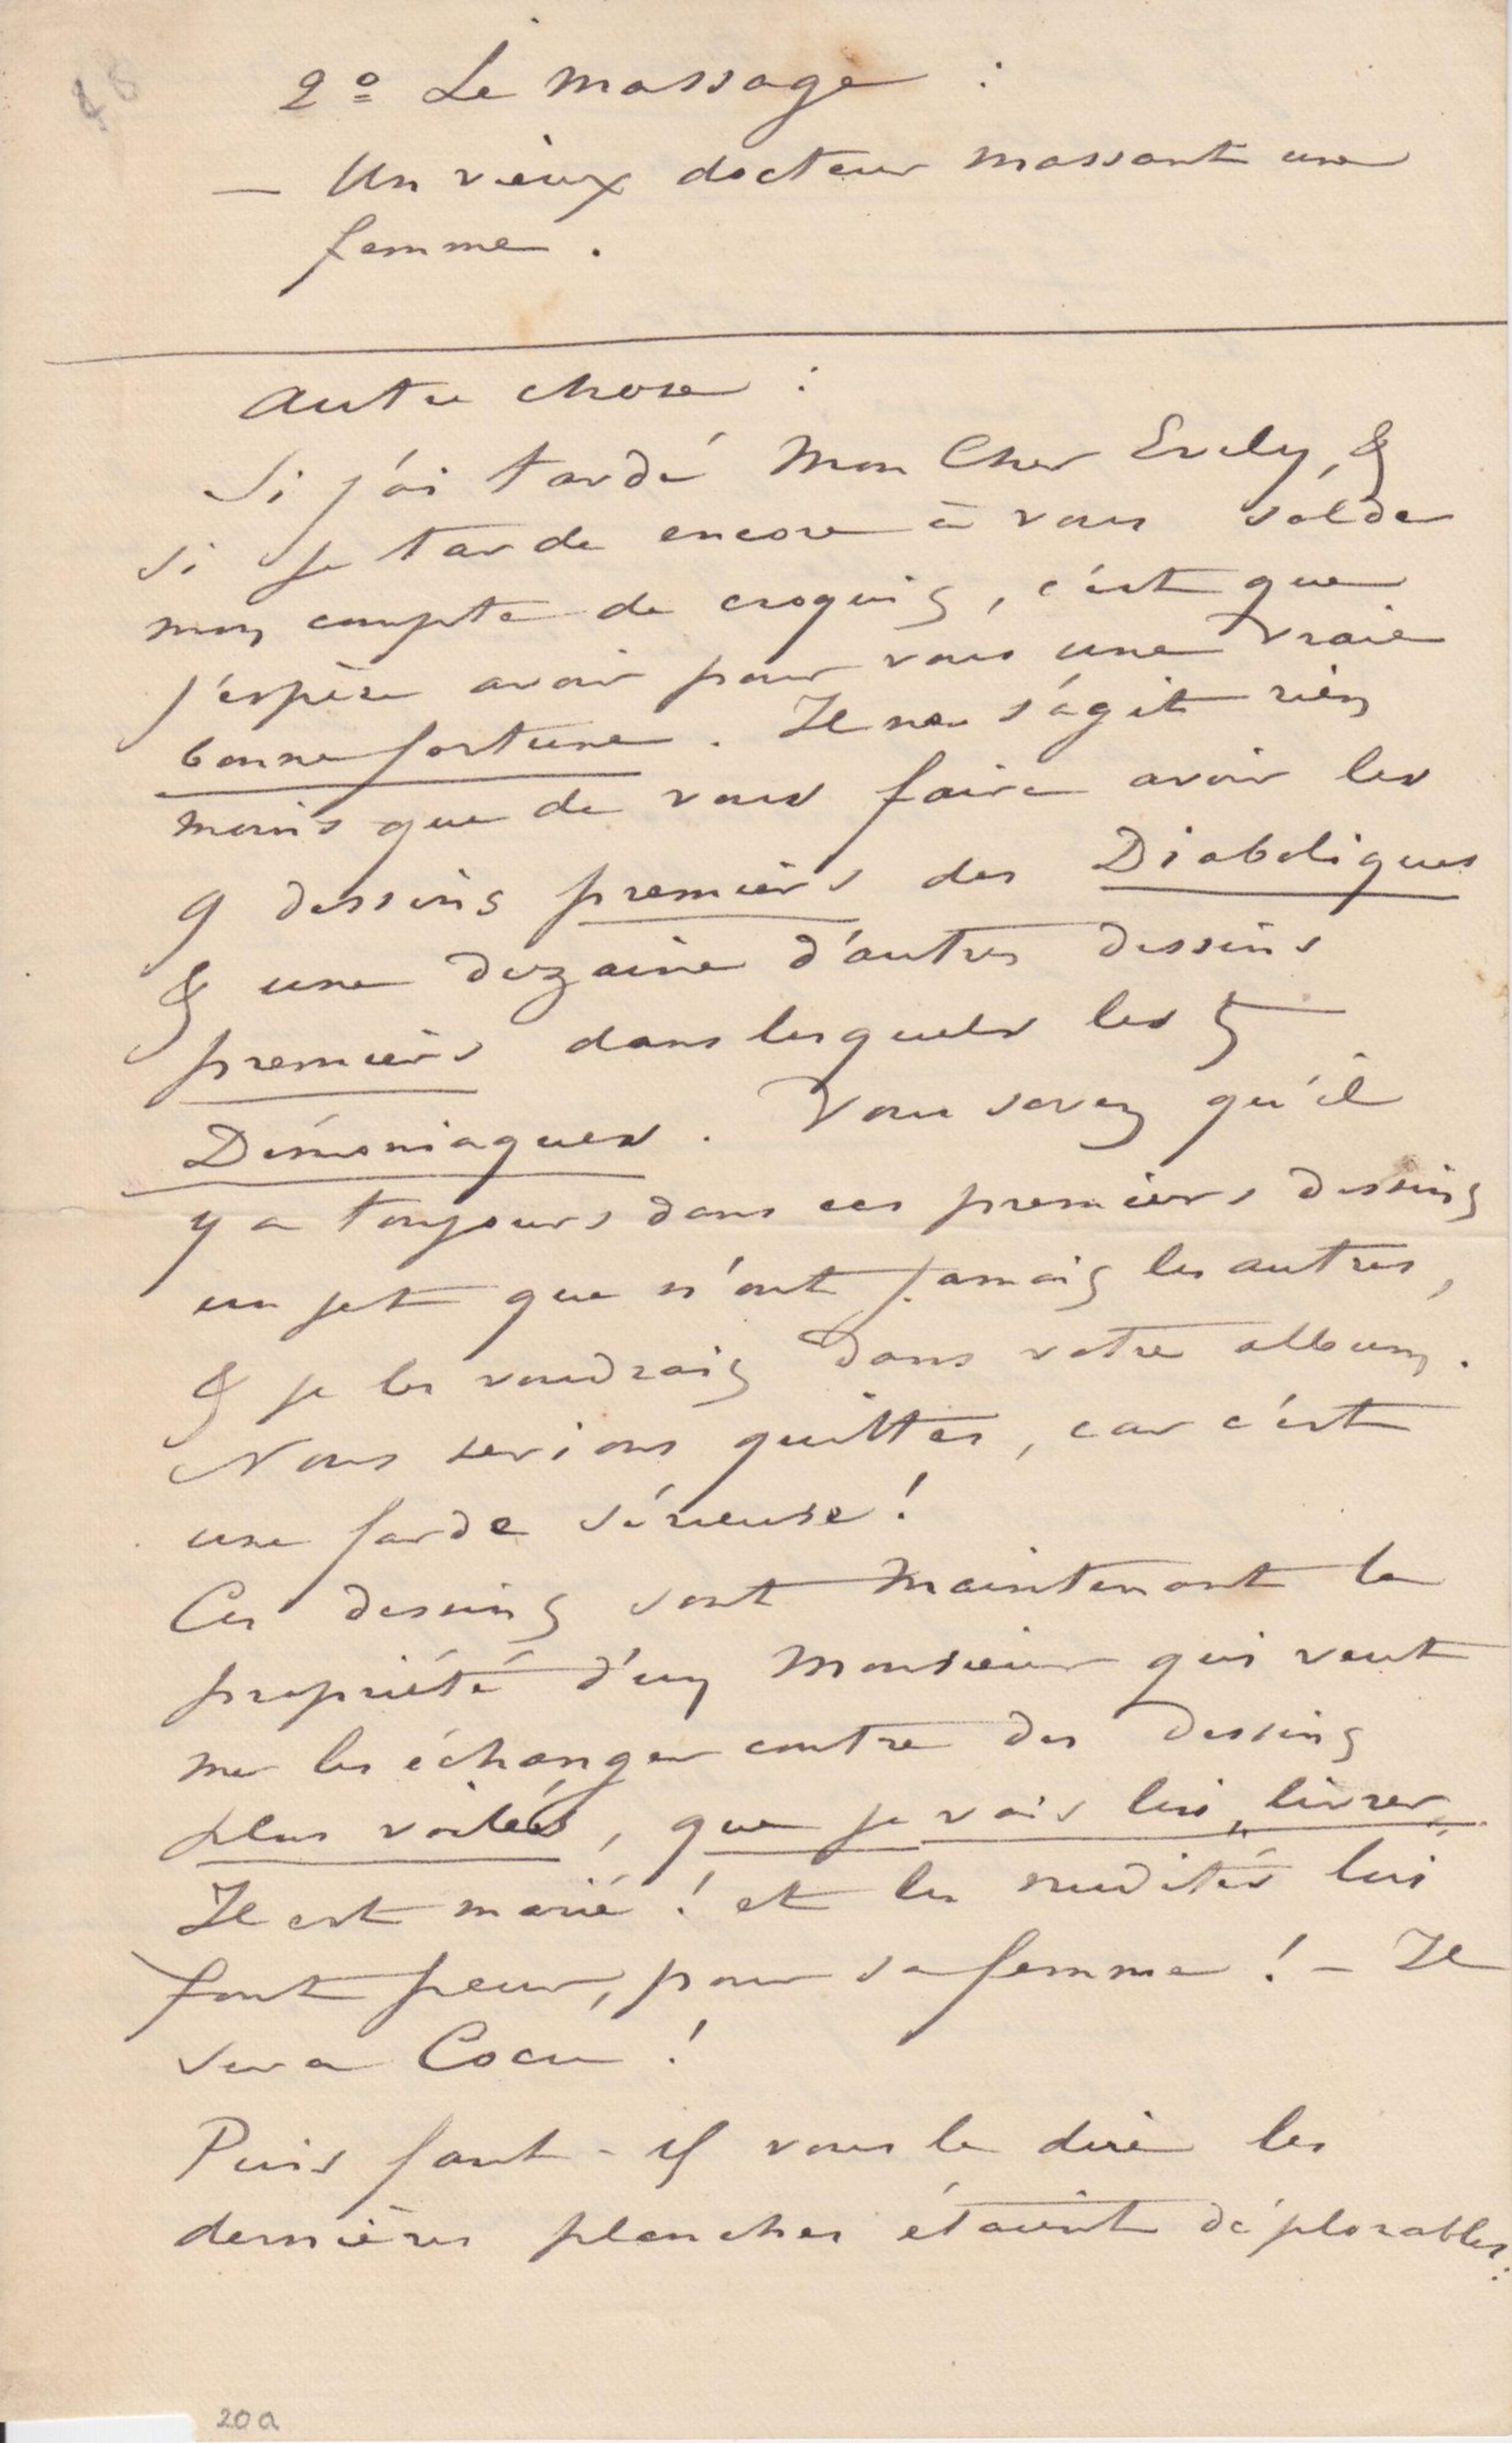 2º Le Massage :
— Un vieux docteur massant une
femme .
Autre chose :
Si j'ai tardé Mon Cher Evely, &
si je tarde encore à vous solder
mon compte de croquis, c'est que
j'espère avoir pour vous une vraie
bonne fortune . Il ne s'agit rien
moins que de vous faire avoir les
9 dessins premiers des Diaboliques
& une dizaine d'autres dessins
premiers dans lesquels les 5
Démoniaques . Vous savez qu'il
y a toujours dans ces premiers dessins
un jet que n'ont jamais les autres,
& je les voudrais dans votre album.
Nous serions quittes, car c'est
une farde sérieuse !
Ces dessins sont maintenant la
propriété d'un Monsieur qui veut
me les échanger contre des dessins
plus voilés, que je vais lui livrer.
Il est marié ! et les nudités lui
font peur, pour sa femme ! – Il
sera Cocu !
Puis faut-il vous le dire les
dernières planches étaient déplorables:
20a